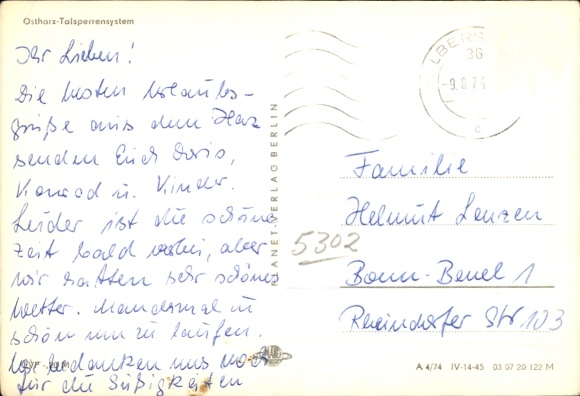 Ostharz-Talsperrensystem
Ihr Lieben!
Die besten Urlaubs-
grüße aus dem Harz
senden Euch Doris,
Konrad u. Kinder.
Leider ist die schöne
Zeit bald vorbei, aber
wir hatten sehr schönes
Wetter. Manchmal zu
schön um zu laufen.
Wir bedanken uns noch
für die Süßigkeiten
PLANET-VERLAG BERLIN
LBERS
36
-9.8.74
c
Familie
Helmut Lenzen
5302
Bonn-Beuel 1
Rheindorfer Str. 103
A 4/74 IV-14-45 03 07 20 122 M